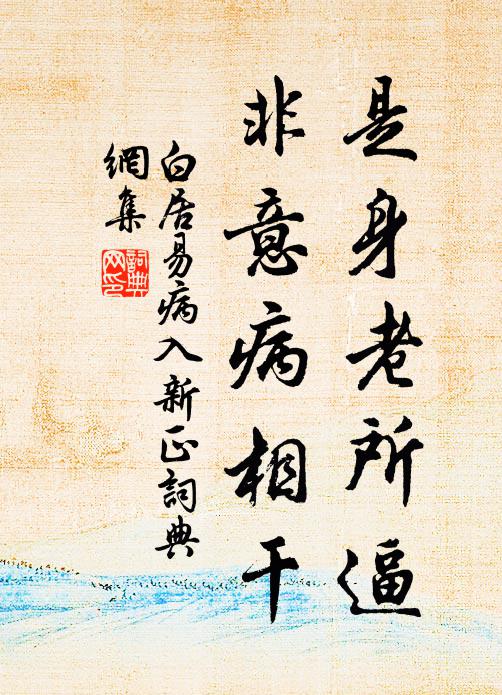 是身老所逼
非意病相干
白居易病入新正詞典
網集
詞典
网印